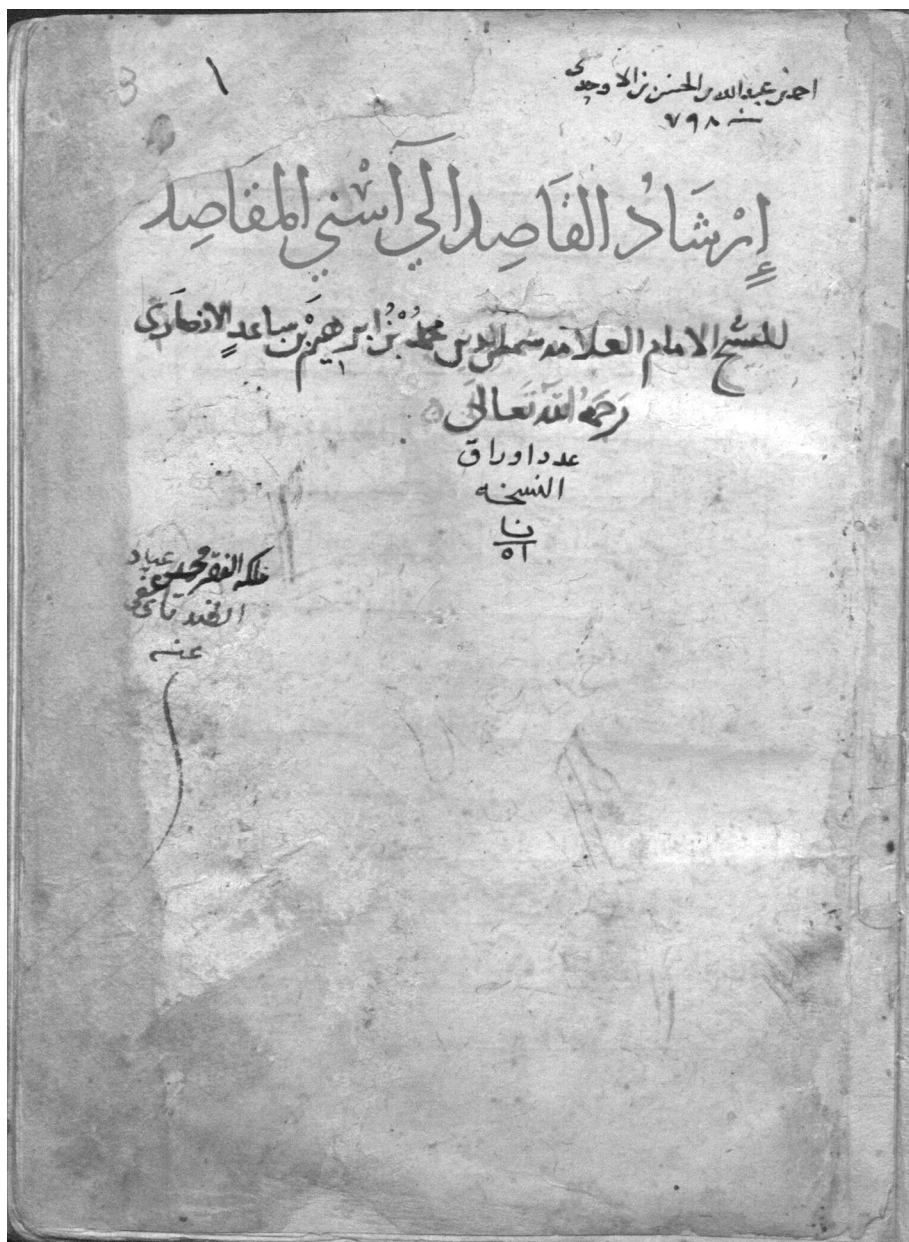 ١
احمد بن عبد الله بن الحسن بن الاوحدي
سنة ٧٩٨
إِرْشَادُ القَاصِد الَي أَسْنَي المقَاصِد
للشيخ الامام العلامه شمس الدين محمدُ بْنُ ابرهيم بْن ساعدٍ الانصاري
رَحمَهُ الله تعَالَى
عدد اوراق
النسخه
نا
٥١
ملكه الفقير محمد عباد
الطندتاي عفي
عنه